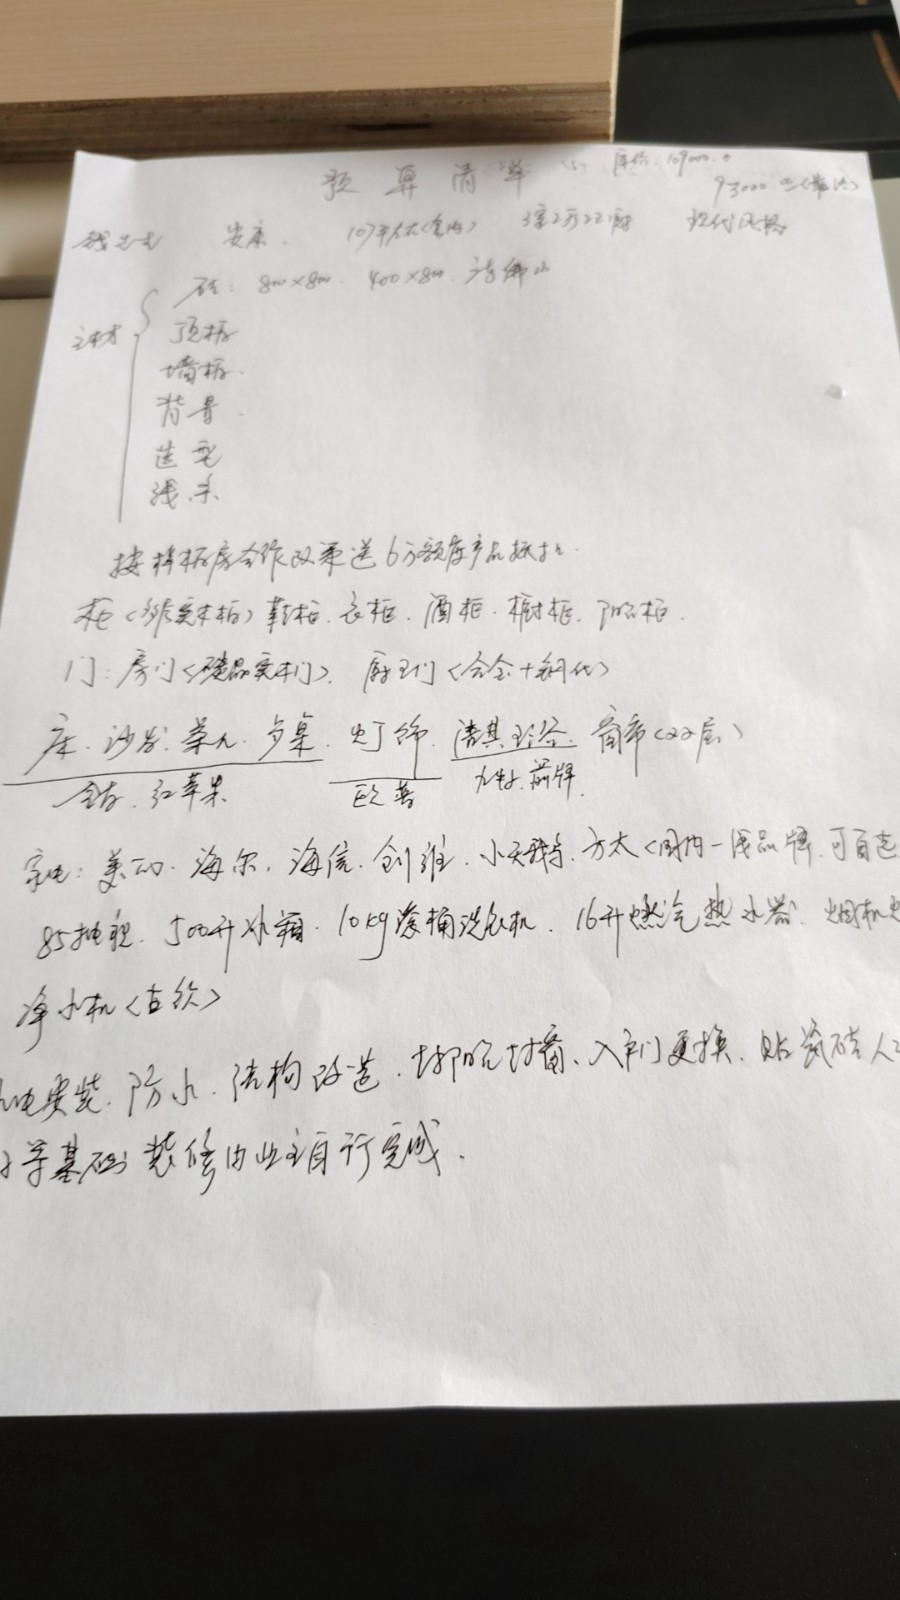 预算清单 原价:109000.0
93000.00(整活)
钱先生 安康. 107平左右(套内) 3室2厅2卫1厨 现代风格
主材 砖:800×800. 400×800.
顶板
墙板.
背景.
造型
线条
按样板房合作政策送6万额度产品抵扣.
柜(多层实木柜)鞋柜.衣柜.酒柜.橱柜.阳台柜.
门:房门(碳晶实木门).厨卫门(合金+钢化)
床.沙发.茶几.多桌.灯饰.洁具卫浴.窗帘(双层)
全友.红苹果 欧普 九牧.箭牌
家电:美的.海尔.海信.创维.小天鹅.方太(国内一线品牌.可自选
85电视.500升冰箱.10kg滚桶洗衣机.16升燃气热水器.烟机
净水机(直饮)
水电安装.防水.结构改造.封阳台封窗、入户门更换.贴瓷砖人工
等基础装修由业主自行完成.